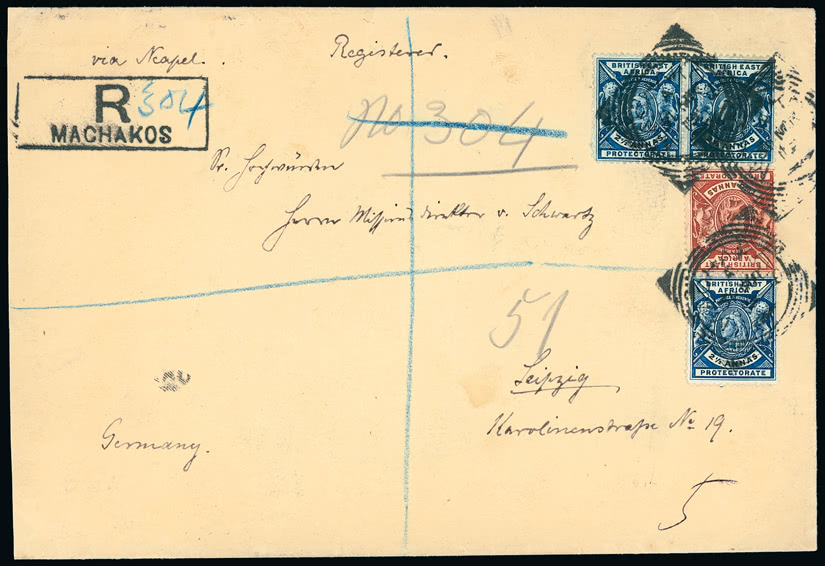 via Neapel.
Registered.
R 304
MACHAKOS
No 304
Sr. Hochwürden
Herrn Missionsdirektor v. Schwartz
51
Leipzig
Karolinenstraße No 19.
Germany.
5
BRITISH EAST
AFRICA
2½ ANNAS
PROTECTORATE
BRITISH EAST
AFRICA
2½ ANNAS
PROTECTORATE
BRITISH EAST
AFRICA
ANNAS
BRITISH EAST
AFRICA
2½ ANNAS
PROTECTORATE